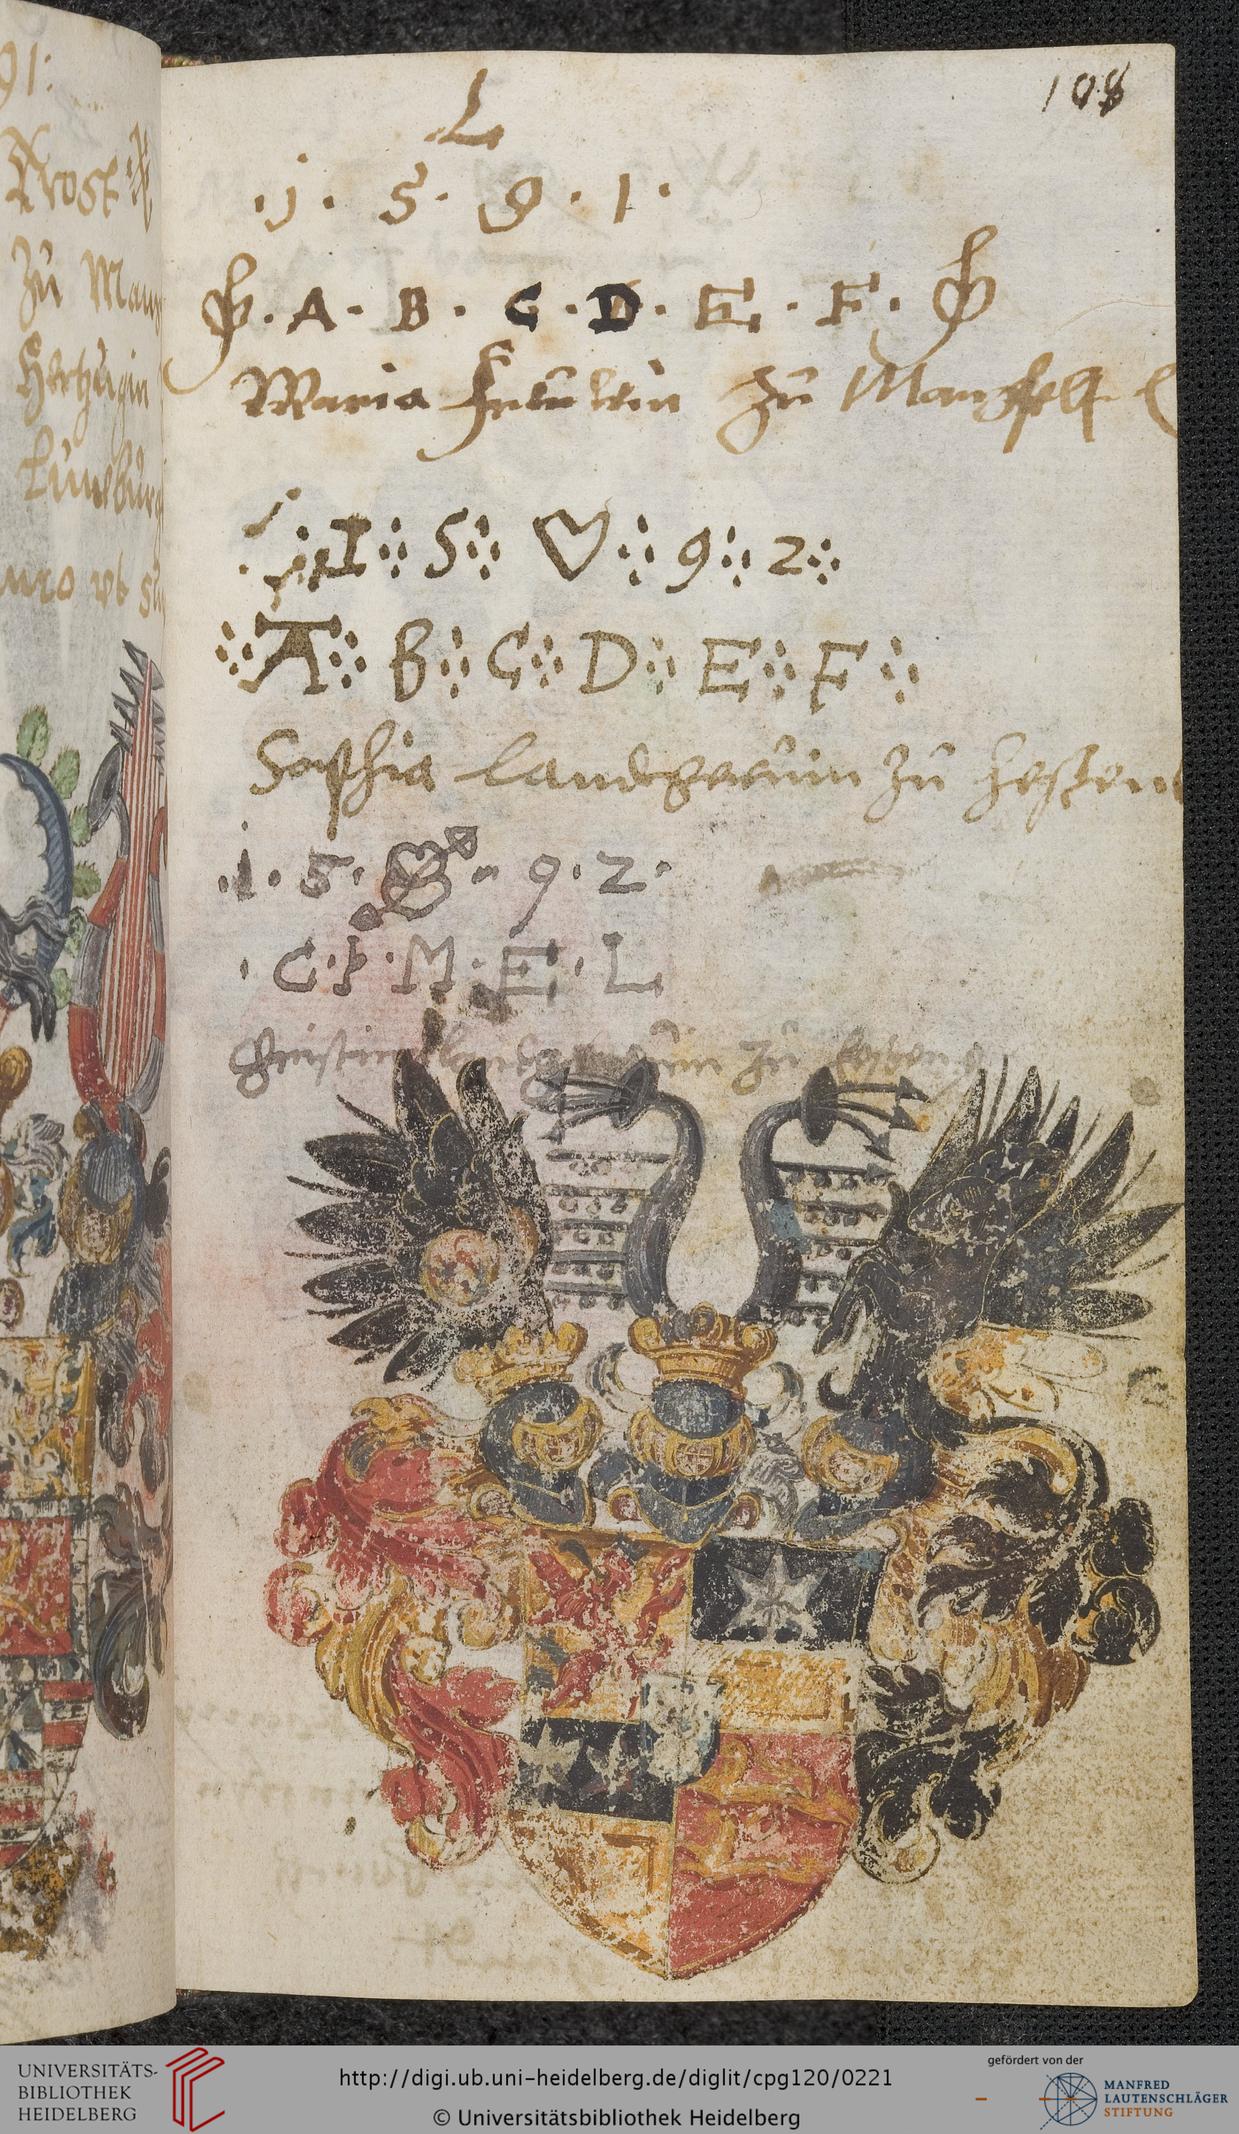 91:
Trost
zu Man
Hertzugin
Lunebur
108
L
· 1 · 5 · 9 · 1 ·
· A · B · C · D · E · F ·
Maria freulein zu Mansfeltt
1 5 9 2
A B C D E F
Sophia Landgravin zu Heßen
· 1 · 5 · 9 · 2 ·
· C · F · M · E · L
zu
UNIVERSITÄTS-
BIBLIOTHEK
HEIDELBERG
http://digi.ub.uni-heidelberg.de/diglit/cpg120/0221
© Universitätsbibliothek Heidelberg
gefördert von der
MANFRED
LAUTENSCHLÄGER
STIFTUNG